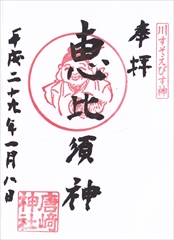 川すそえびす神
奉拝
恵比須神
唐崎神社
平成二十九年一月八日